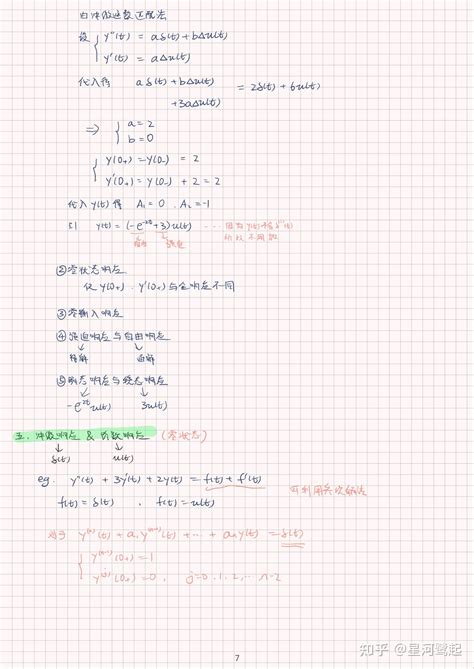 由冲激函数匹配法
设 { y''(t) = aδ(t) + bΔu(t)
y'(t) = aΔu(t)
代入得 aδ(t) + bΔu(t) + 3aΔu(t) = 2δ(t) + 6u(t)
⇒ { a = 2
b = 0
{ y(0+) = y(0-) = 2
y'(0+) = y(0-) + 2 = 2
代入 y(t) 得 A₁ = 0 . A₂ = -1
则 y(t) = (-e^-2t + 3) u(t) ····
②零状态响应
仅 y(0+) . y'(0+) 与全响应不同
③零输入响应
④强迫响应与自由响应
↓ ↓
特解
⑤瞬态响应与稳态响应
↓ ↓
-e^-2t u(t) 3u(t)
五. 冲激响应 & 阶跃响应 (零状态)
↓ ↓
δ(t) u(t)
eg. y''(t) + 3y'(t) + 2y(t) = f(t) + f'(t)
可利用
f(t) = δ(t) , f(t) = u(t)
对于 y^(n)(t) + a₁y^(n-1)(t) + ··· + aₙy(t) = δ(t)
{ y^(n-1)(0+) = 1
y^(j)(0+) = 0 , j = 0, 1, 2, ··· n-2
7
知乎 @星河鹭起